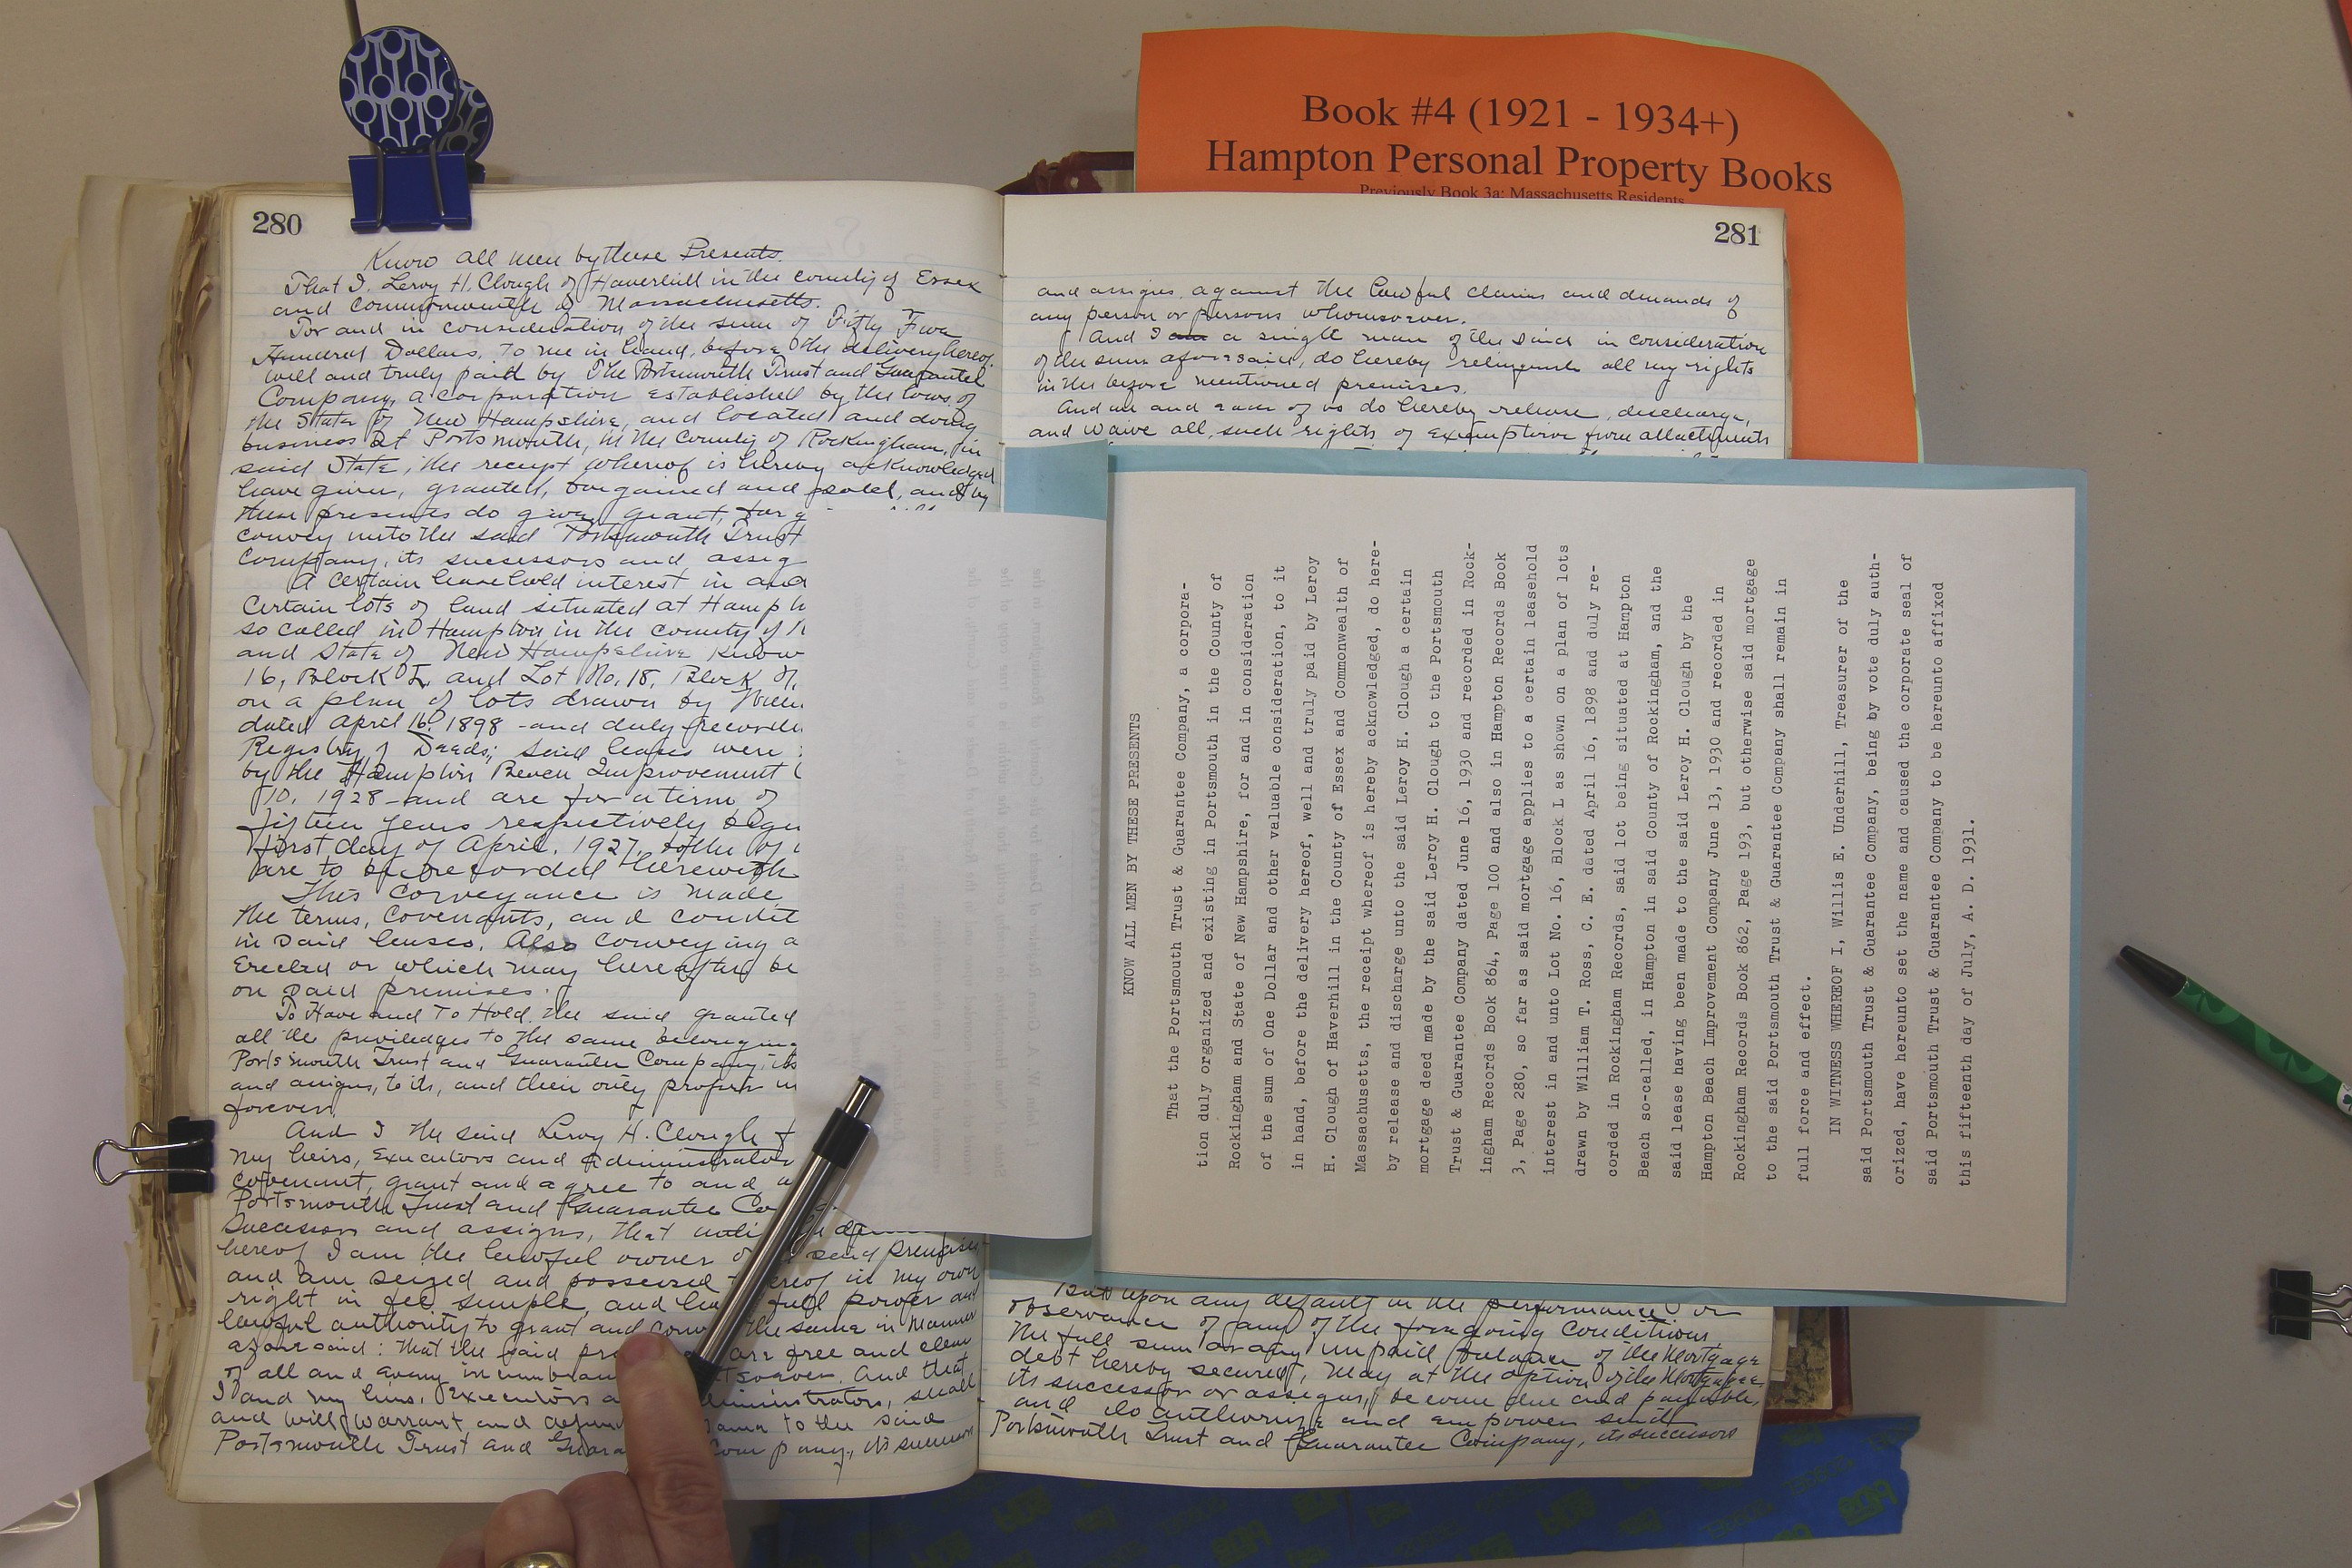 Book #4 (1921 - 1934+)
Hampton Personal Property Books
Previously Book 3a: Massachusetts Residents
280
Know all men by these Presents.
That I, Leroy H. Clough of Haverhill in the county of Essex
and Commonwealth of Massachusetts.
For and in consideration of the sum of Fifty Five
Hundred Dollars, To me in hand, before the delivery hereof,
well and truly paid by The Portsmouth Trust and Guarantee
Company, a corporation established by the laws of
the State of New Hampshire, and located and doing
business at Portsmouth, in the County of Rockingham, in
said State, the receipt whereof is hereby acknowledged
have given, granted, bargained and sold, and by
these presents do give, grant, barg
convey unto the said Portsmouth Trust
Company, its successors and assig
A certain leasehold interest in and
certain lots of land situated at Hamp
so called in Hampton in the county of
and State of New Hampshire know
16, Block L, and Lot No. 18, Block
on a plan of lots drawn by
dated April 16, 1898 - and duly recorde
Registry of Deeds; said leases were
by the Hampton Beach Improvement
10, 1928 - and are for a term of
fifteen years respectively
first day of April, 1927,
are to be recorded herewith
This conveyance is made
the terms, covenants, and condit
in said leases. Also conveying a
erected or which may hereafter be
on said premises.
To Have and To Hold, the said granted
all the priviledges to the same belonging
Portsmouth Trust and Guarantee Company, its
and assigns, to its, and their only proper
forever.
And I the said Leroy H. Clough
my heirs, executors and administrators
covenant, grant and agree to and
Portsmouth Trust and Guarantee Co
successors and assigns, that until
hereof I am the lawful owner o said premises
and am seized and possessed ereof in my own
right in fee simple, and have full power and
lawful authority to grant and conv the same in manner
aforesaid: that the said pre are free and clear
of all and every incumbran atsoever. And that
I and my heirs, executors a ministrators, shall
and will warrant and defend same to the said
Portsmouth Trust and Guara Company, its success
281
and assigns, against the lawful claims and demands of
any person or persons whomsoever.
And I am a single man of the said in consideration
of the sum aforesaid, do hereby relinquish all my rights
in the before mentioned premises.
And we and each of us do hereby release, discharge,
and waive all such rights of exemption from attachments
KNOW ALL MEN BY THESE PRESENTS
That the Portsmouth Trust & Guarantee Company, a corpora-
tion duly organized and existing in Portsmouth in the County of
Rockingham and State of New Hampshire, for and in consideration
of the sum of One Dollar and other valuable consideration, to it
in hand, before the delivery hereof, well and truly paid by Leroy
H. Clough of Haverhill in the County of Essex and Commonwealth of
Massachusetts, the receipt whereof is hereby acknowledged, do here-
by release and discharge unto the said Leroy H. Clough a certain
mortgage deed made by the said Leroy H. Clough to the Portsmouth
Trust & Guarantee Company dated June 16, 1930 and recorded in Rock-
ingham Records Book 864, Page 100 and also in Hampton Records Book
3, Page 280, so far as said mortgage applies to a certain leasehold
interest in and unto Lot No. 16, Block L as shown on a plan of lots
drawn by William T. Ross, C. E. dated April 16, 1898 and duly re-
corded in Rockingham Records, said lot being situated at Hampton
Beach so-called, in Hampton in said County of Rockingham, and the
said lease having been made to the said Leroy H. Clough by the
Hampton Beach Improvement Company June 13, 1930 and recorded in
Rockingham Records Book 862, Page 193, but otherwise said mortgage
to the said Portsmouth Trust & Guarantee Company shall remain in
full force and effect.
IN WITNESS WHEREOF I, Willis E. Underhill, Treasurer of the
said Portsmouth Trust & Guarantee Company, being by vote duly auth-
orized, have hereunto set the name and caused the corporate seal of
said Portsmouth Trust & Guarantee Company to be hereunto affixed
this fifteenth day of July, A. D. 1931.
But upon any default in the performance or
observance of any of the foregoing conditions
the full sum or any unpaid balance of the Mortgage
debt hereby secured, may at the option of the Mortgagee,
its successor or assigns, become due and payable,
and do authorize and empower said
Portsmouth Trust and Guarantee Company, its successors